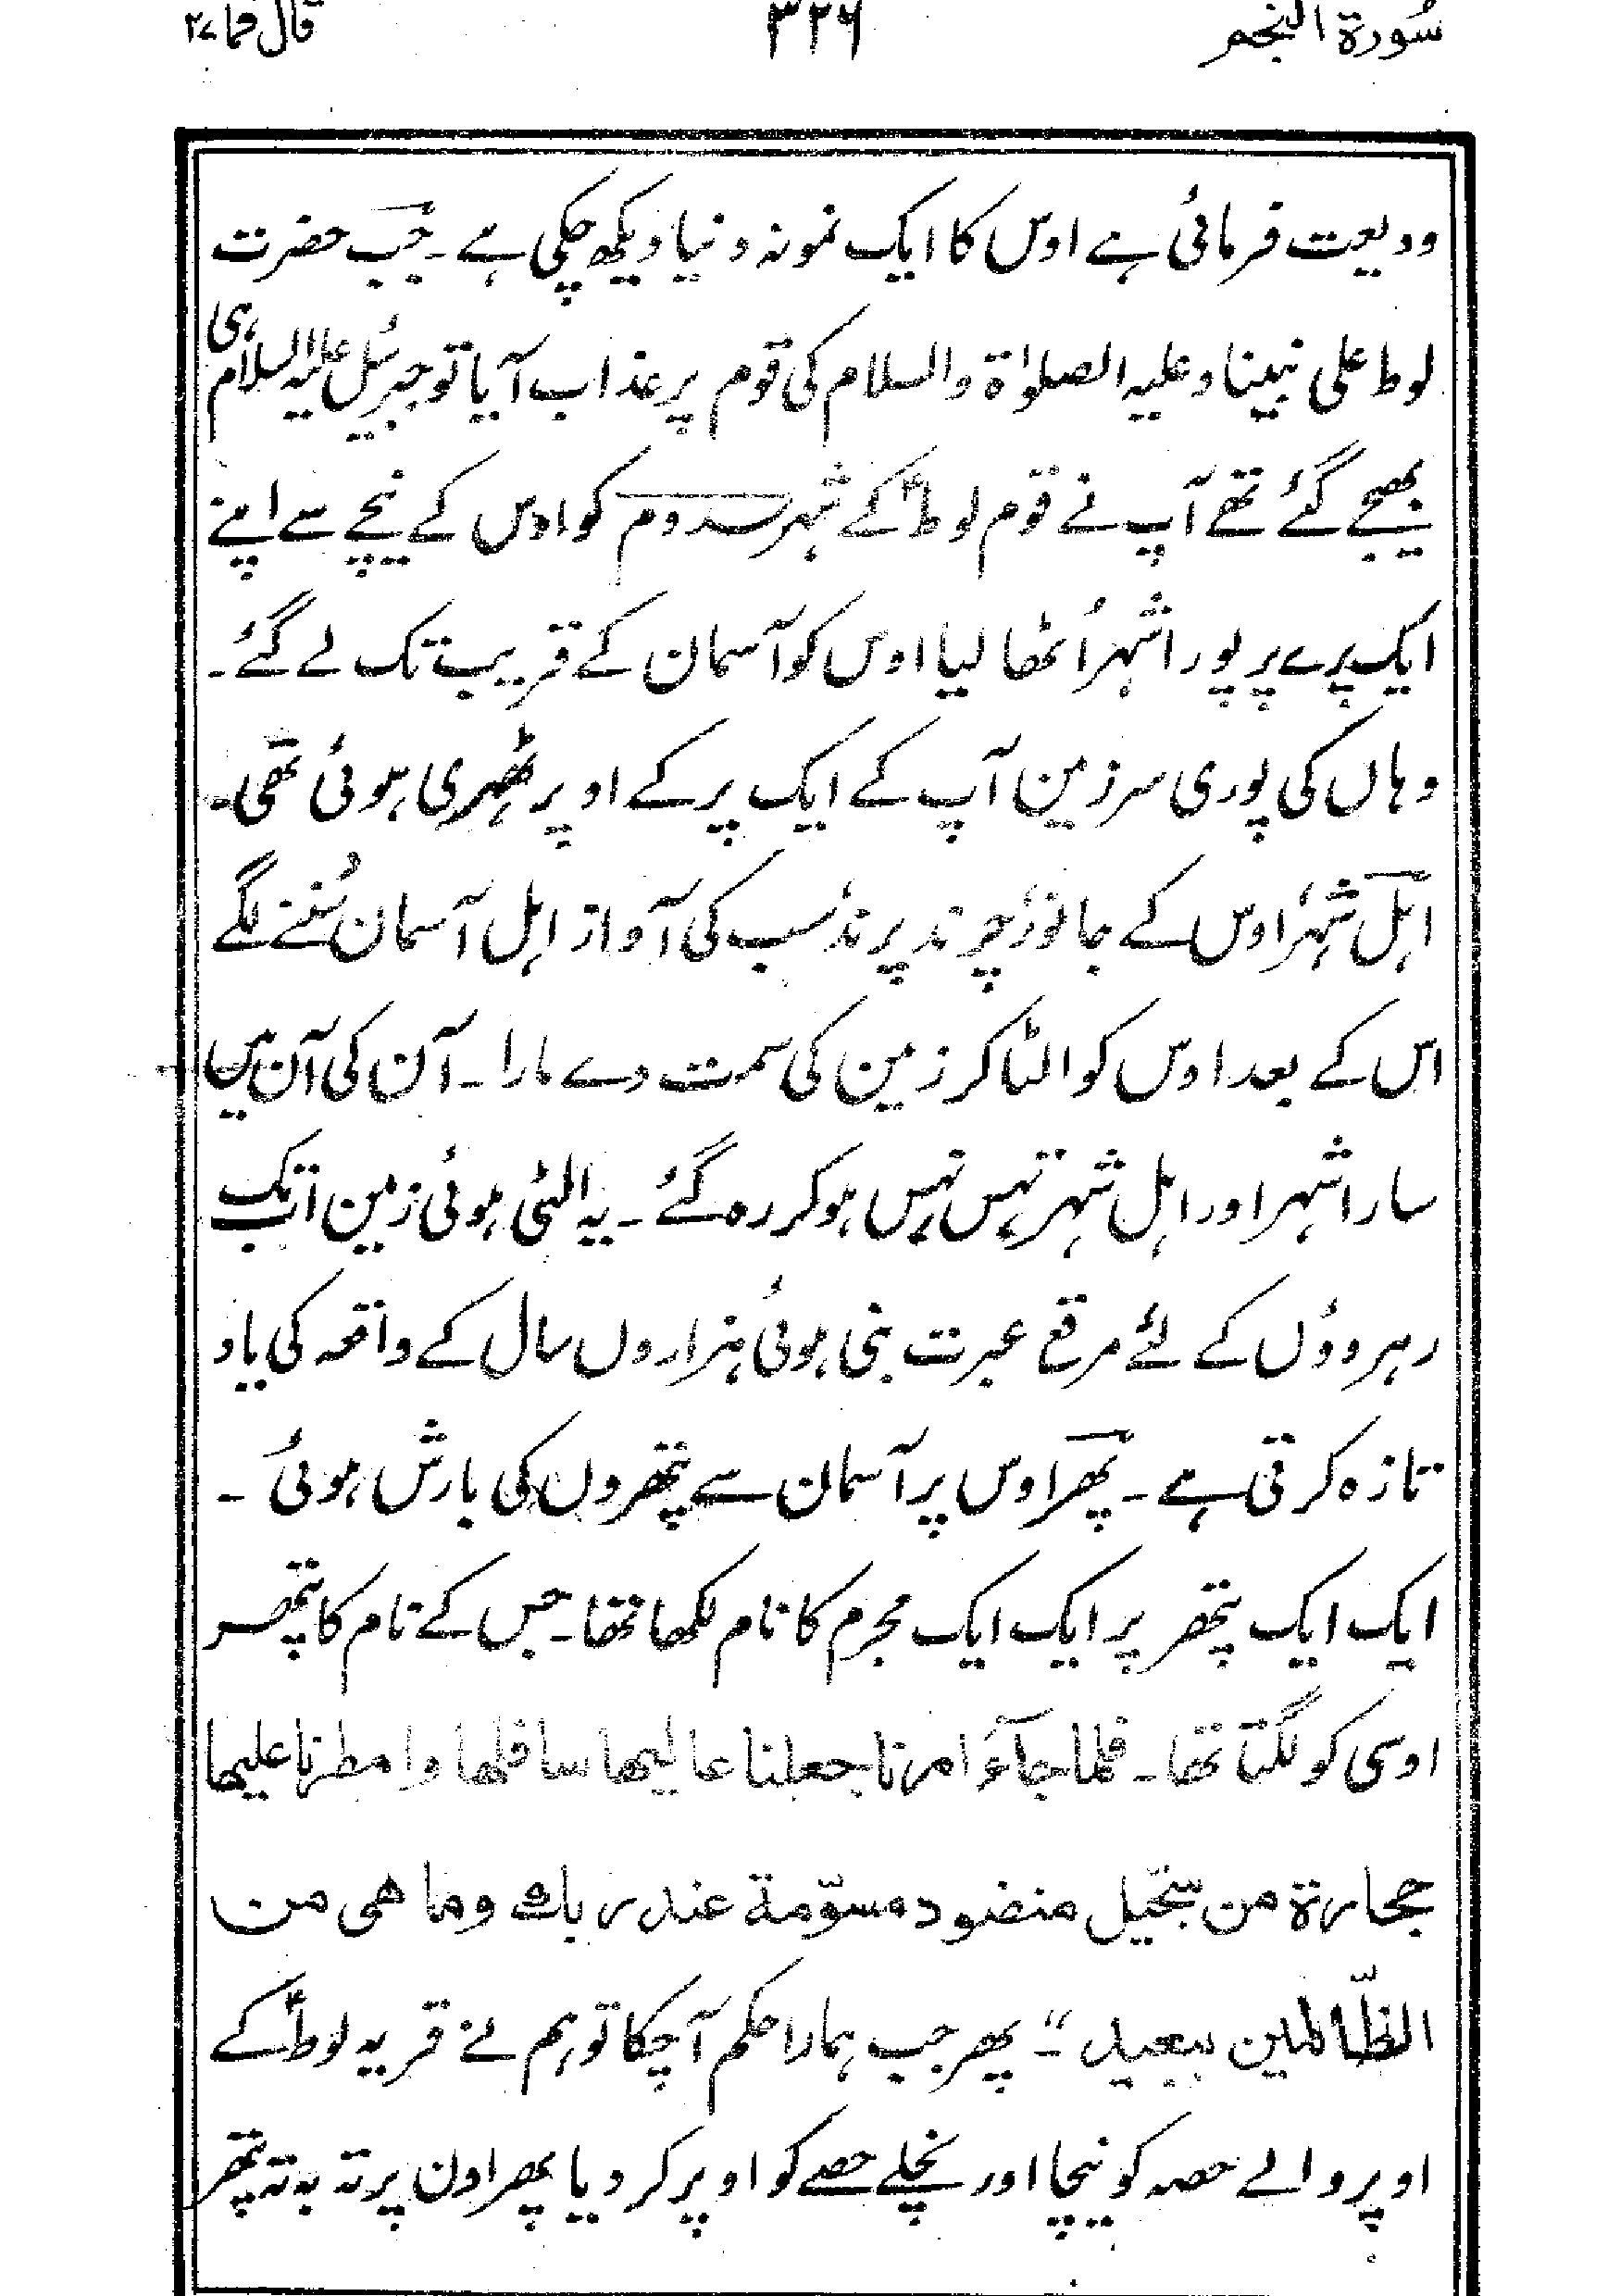 سُورۃ النجم ۳۲۶ قال فما ۲۷
ودیعت فرمائی ہے اوس کا ایک نمونہ دنیا دیکھ چکی ہے ۔ جب حضرت
لوط علی نبینا وعلیہ الصلواۃ والسلام کی قوم پر عذاب آیا تو جبرئیل علیہ السلام ہی
بھیجے گئے تھے آپ نے قوم لوطؑ کے شہر سدوم کو اوس کے نیچے سے اپنے
ایک پرے پر پورا شہر اُٹھا لیا اوس کو آسمان کے قریب تک لے گئے ۔
وہاں کی پوری سرزمین آپ کے ایک پر کے اوپر ٹھہری ہوئی تھی ۔
اہل شہر، اوس کے جانور، چرند پرند، سب کی آواز اہل آسمان سُننے لگے
اس کے بعد اوس کو الٹا کر زمین کی سمت دے مارا ۔ آن کی آن میں
سارا شہر اور اہل شہر تہس نہس ہو کر رہ گئے ۔ یہ الٹی ہوئی زمین اب تک
رہرووں کے لئے مرقع عبرت بنی ہوئی ہزاروں سال کے واقعہ کی یاد
تازہ کرتی ہے ۔ پھر اوس پر آسمان سے پتھروں کی بارش ہوئی ۔
ایک ایک پتھر پر ایک ایک مجرم کا نام لکھا تھا ۔ جس کے نام کا پتھر
اوسی کو لگتا تھا ۔ فلما جآءَ امرنا جعلنا عالیھا سافلھا وامطرنا علیھا
حجارۃ من سجّیل منضود مسوّمۃ عند ربك وما ھی من
الظّالمین ببعید “ ۔ پھر جب ہمارا حکم آچکا تو ہم نے قریہ لوطؑ کے
اوپر والے حصہ کو نیچا اور نچلے حصے کو اوپر کر دیا پھر اون پر تہ بہ تہ پتھر